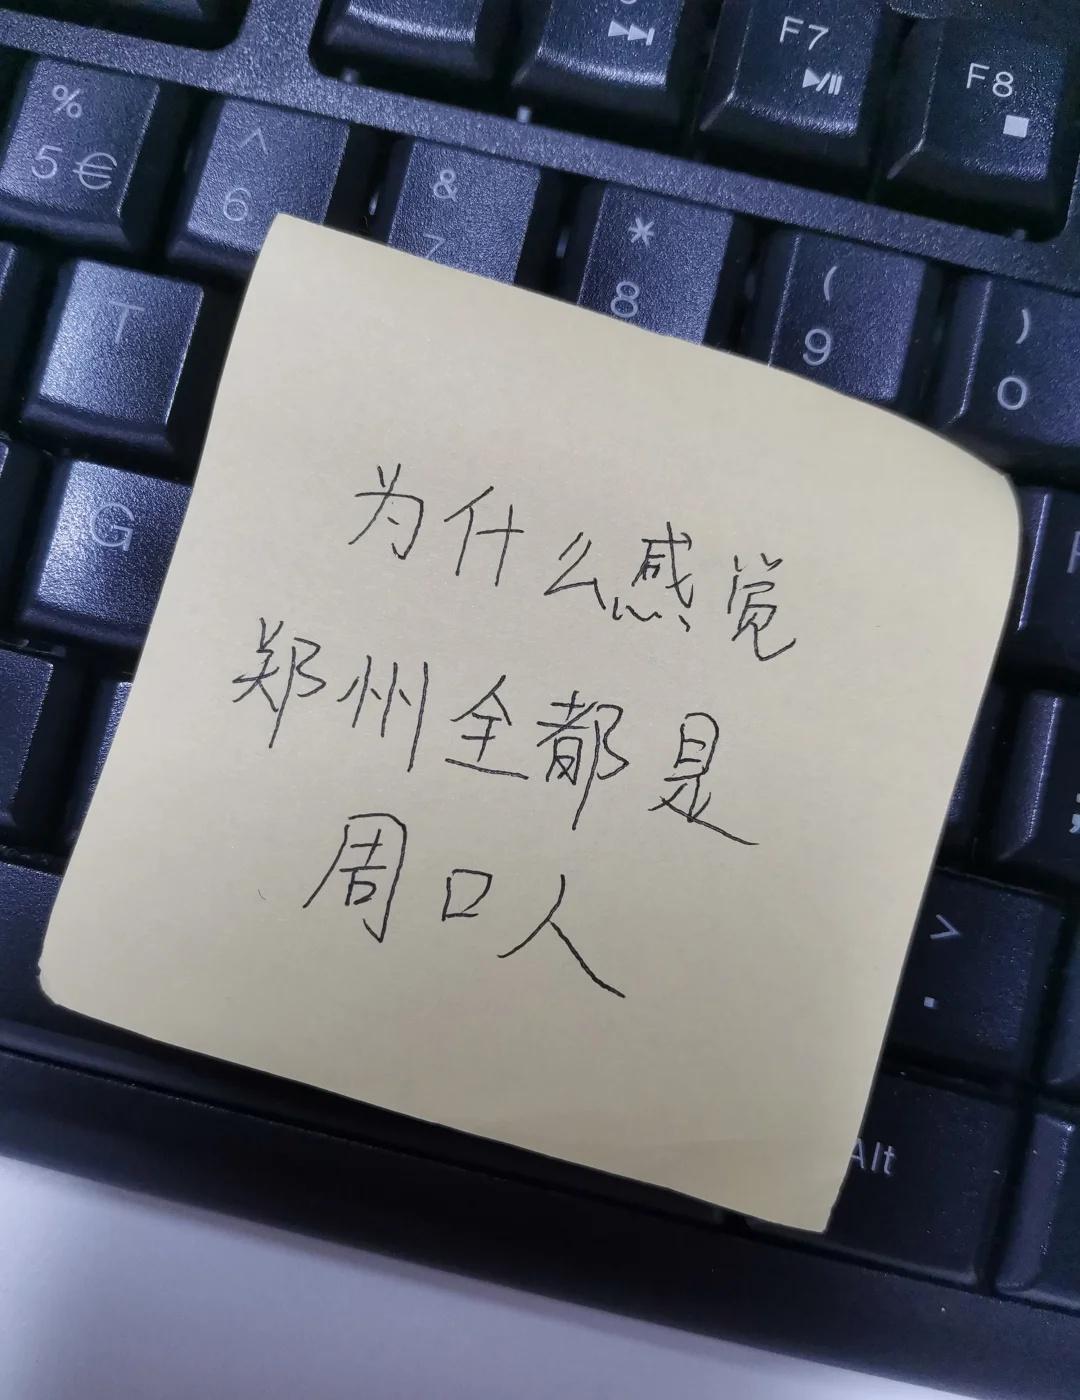 F7
F8
% 5 €
^ 6
& 7
* 8
( 9
) 0
T
G
为什么感觉
郑州全都是
周口人
> .
Alt